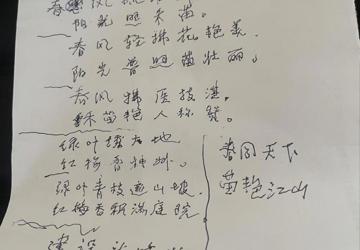 春风
阳光照禾苗。
春风轻拂花艳美,
阳光普照苗壮丽。
春风拂医技湛,
禾苗艳人称赞。
绿叶 地
红梅香神州。
绿叶青枝遍山坡
红梅香飘满庭院
春园天下
苗艳江山
建设